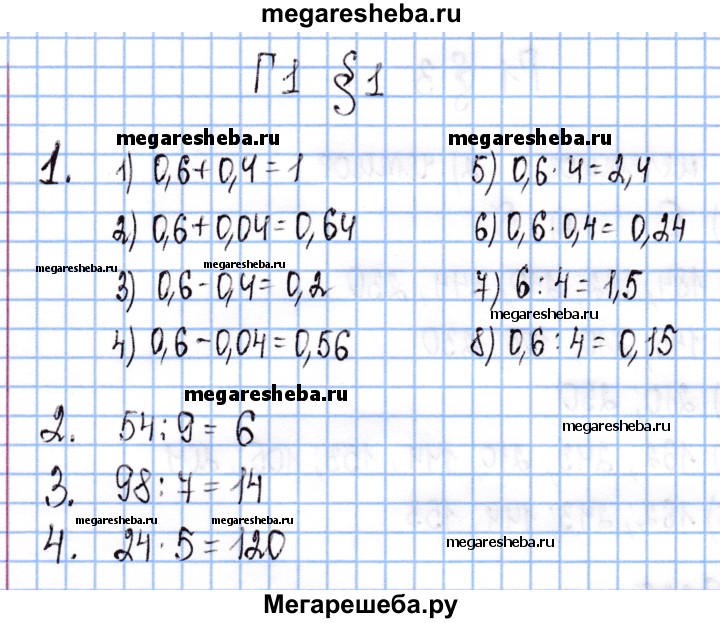 megaresheba.ru
Г1 §1
megaresheba.ru megaresheba.ru
1. 1) 0,6+0,4=1 5) 0,6·4=2,4
2) 0,6+0,04=0,64 6) 0,6·0,4=0,24
megaresheba.ru megaresheba.ru
3) 0,6-0,4=0,2 7) 6:4=1,5
megaresheba.ru
4) 0,6-0,04=0,56 8) 0,6:4=0,15
megaresheba.ru
2. 54:9=6 megaresheba.ru
3. 98:7=14
megaresheba.ru megaresheba.ru
4. 24·5=120 megaresheba.ru
Мегарешеба.ру